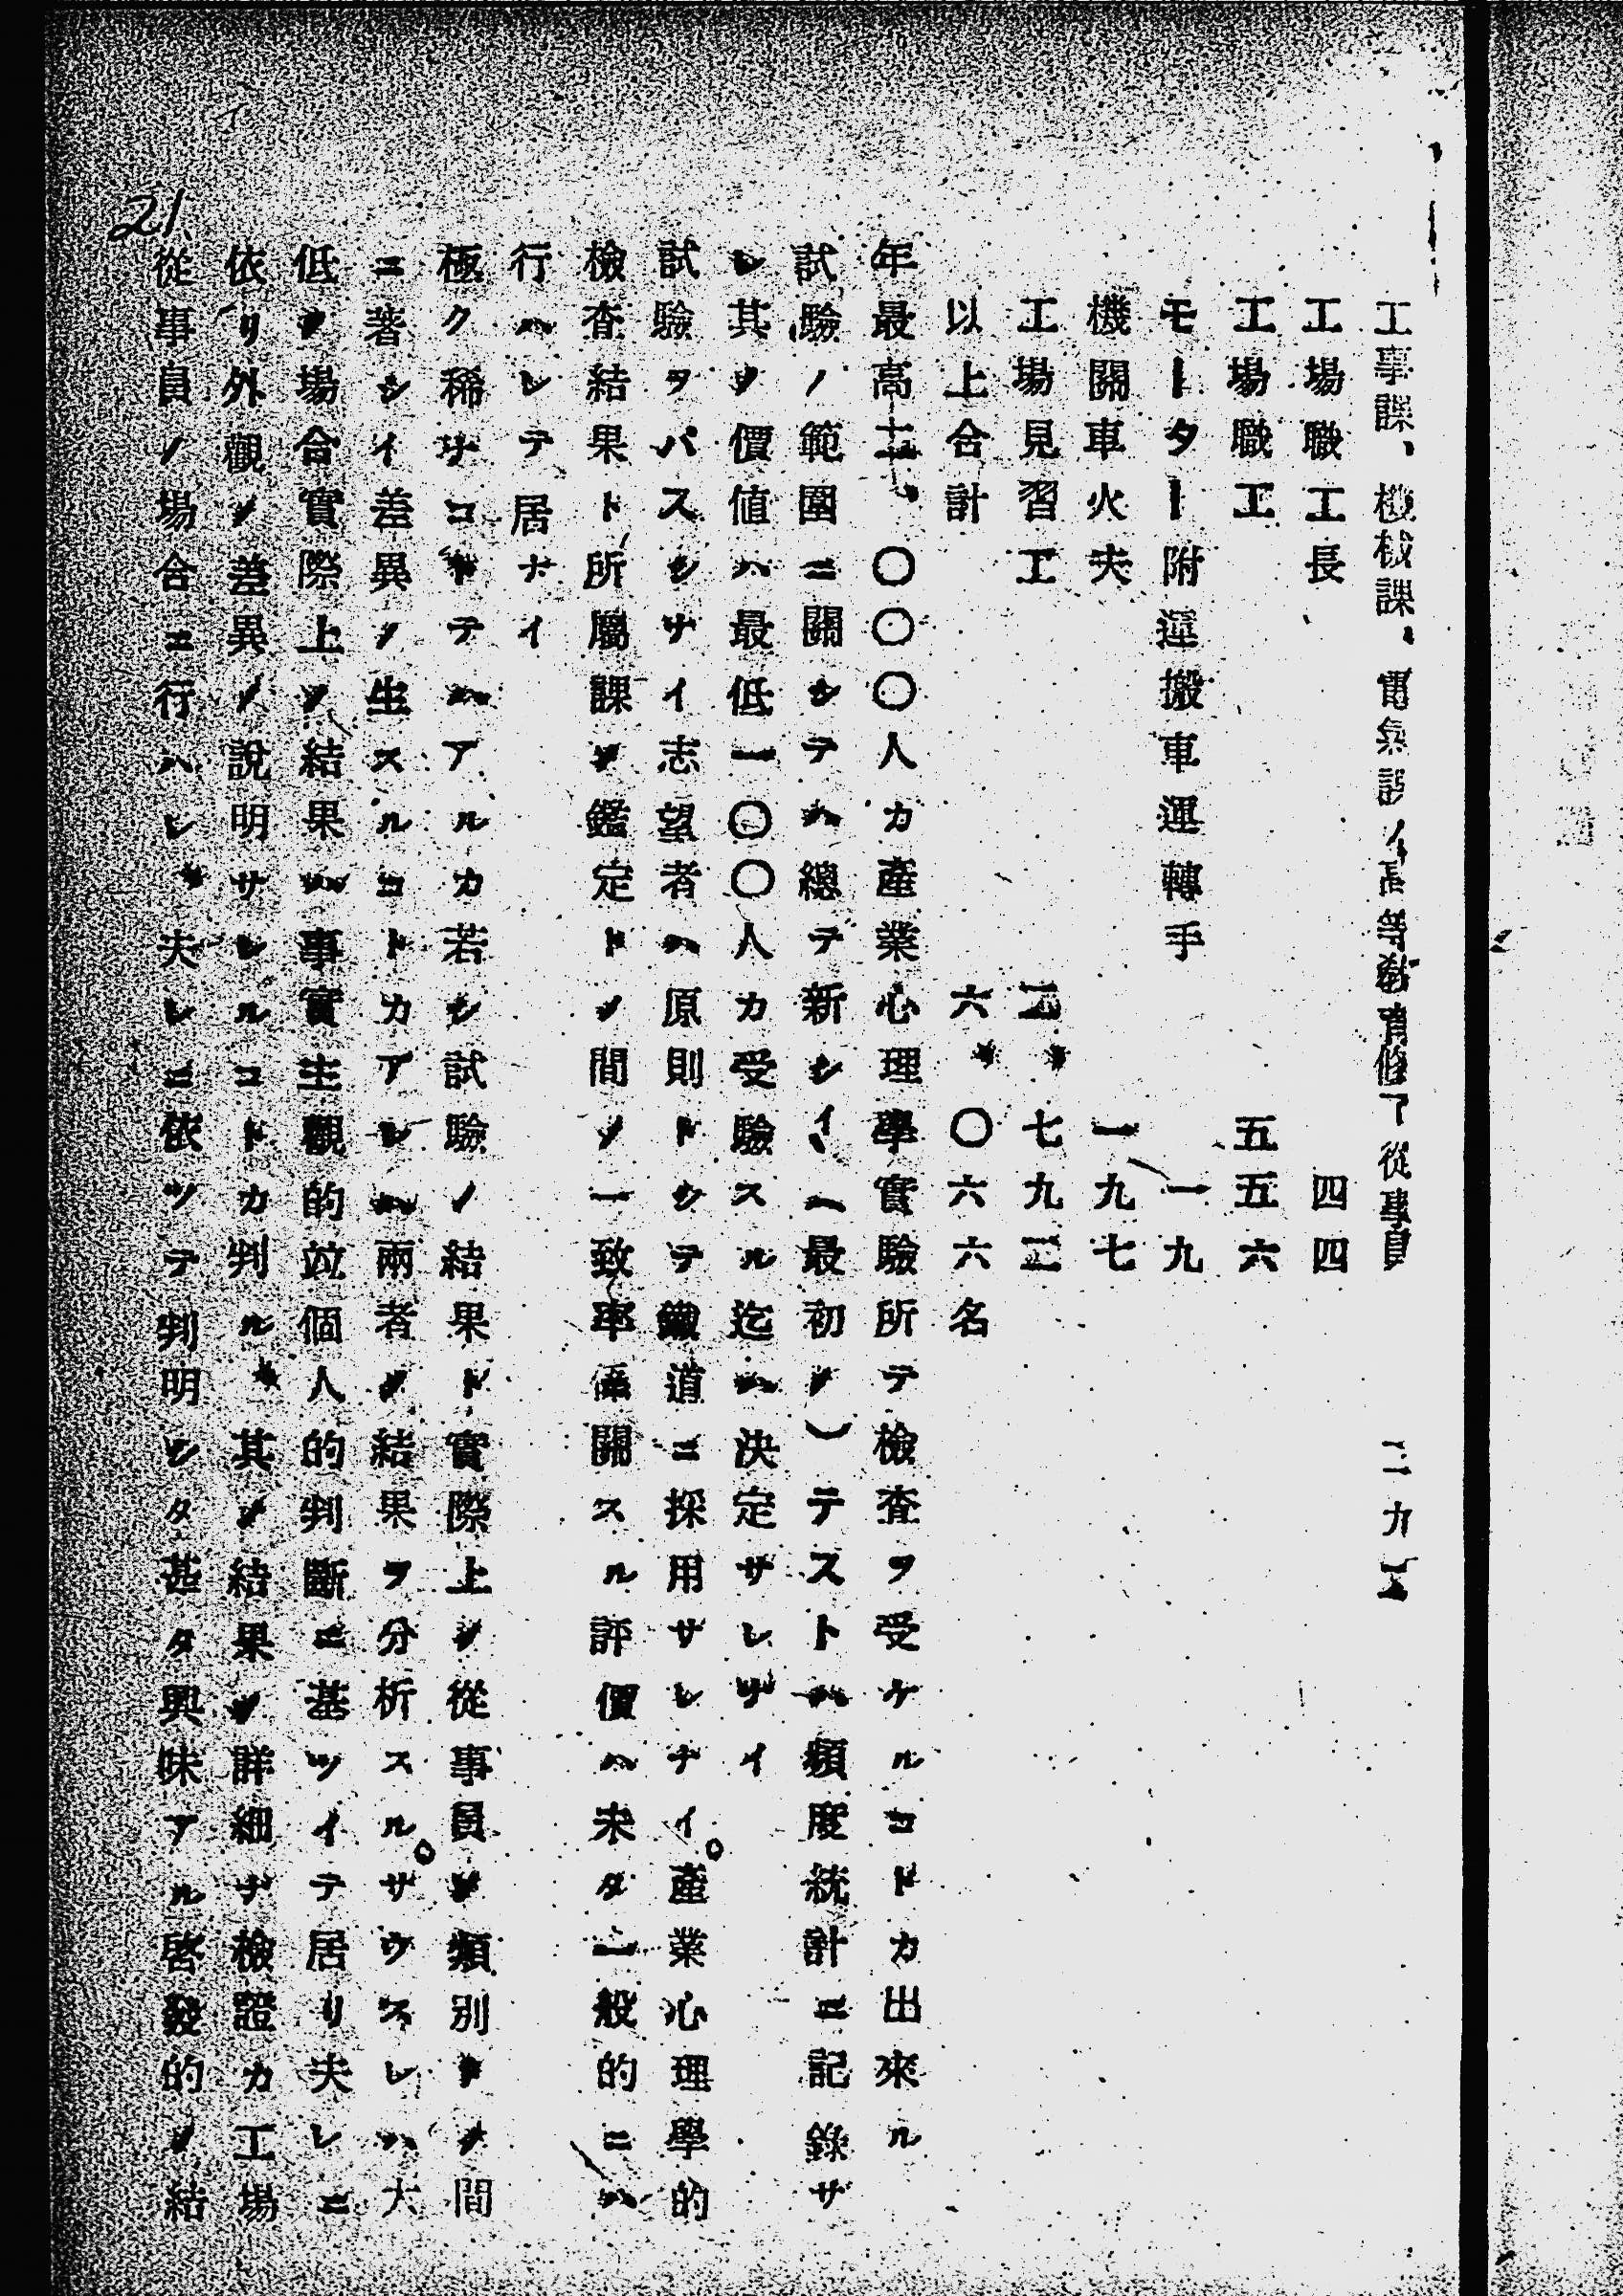 工事課、機械課、電氣課ノ高等敎育修了從事員　二九
工場職工長　四四
工場職工　五五六
モーター附運搬車運轉手　一九
機關車火夫　一九七
工場見習工　七九三
以上合計　六、〇六六名
年最高、〇〇〇人カ產業心理學實驗所テ檢查ヲ受ケルコトカ出來ル
試驗ノ範圍ニ關シテハ總テ新シイ、（最初ノ）テストハ頻度統計ニ記錄サ
レ其ノ價値ハ最低一〇〇人カ受驗スル迄ハ決定サレナイ
試驗ヲパスシナイ志望者ハ原則トシテ鐵道ニ採用サレナイ。產業心理學的
檢查結果ト所屬課ノ鑑定トノ間ノ一致率ニ關スル評價ハ未タ一般的ニハ
行ハレテ居ナイ
極ク稀ナコトテハアルカ若シ試驗ノ結果ト實際上ノ從事員ノ類別トノ間
ニ著シイ差異ノ生スルコトカアレハ兩者ノ結果ヲ分析スル。サウスレハ大
低ノ場合實際上ノ結果ハ事實主觀的竝個人的判斷ニ基ツイテ居リ夫レニ
依リ外觀ノ差異ノ說明サレルコトカ判ル、其ノ結果ノ詳細ナ檢證カ工場
從事員ノ場合ニ行ハレ、夫レニ依ツテ判明シタ甚タ興味アル啓發的ノ結
21